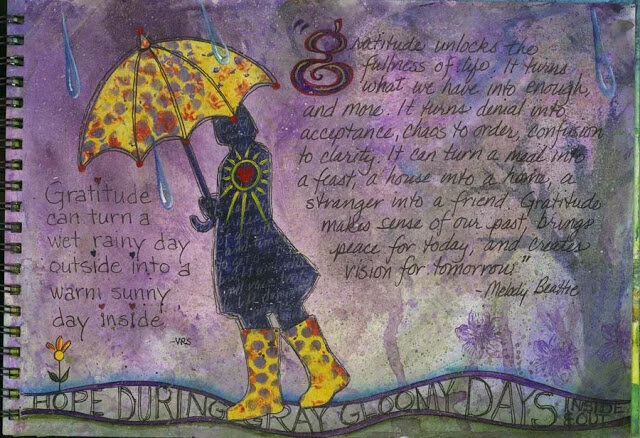 "Gratitude unlocks the
fullness of life. It turns
what we have into enough,
and more. It turns denial into
acceptance, chaos to order, confusion
to clarity. It can turn a meal into
a feast, a house into a home, a
stranger into a friend. Gratitude
makes sense of our past, brings
peace for today, and creates
vision for tomorrow."
-Melody Beattie
Gratitude
can turn a
wet rainy day
outside into a
warm sunny
day inside
-VRS
HOPE DURING GRAY GLOOMY DAYS INSIDE
& OUT